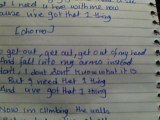 that I need u here with me now
cause uve got that 1 thing
[chorus]
get out, get out, get out of my head
And fall into my arms instead
I don't, I don't, dont know what it is
But I need that 1 thing
And uve got that 1 thing
Now im climbing the walls